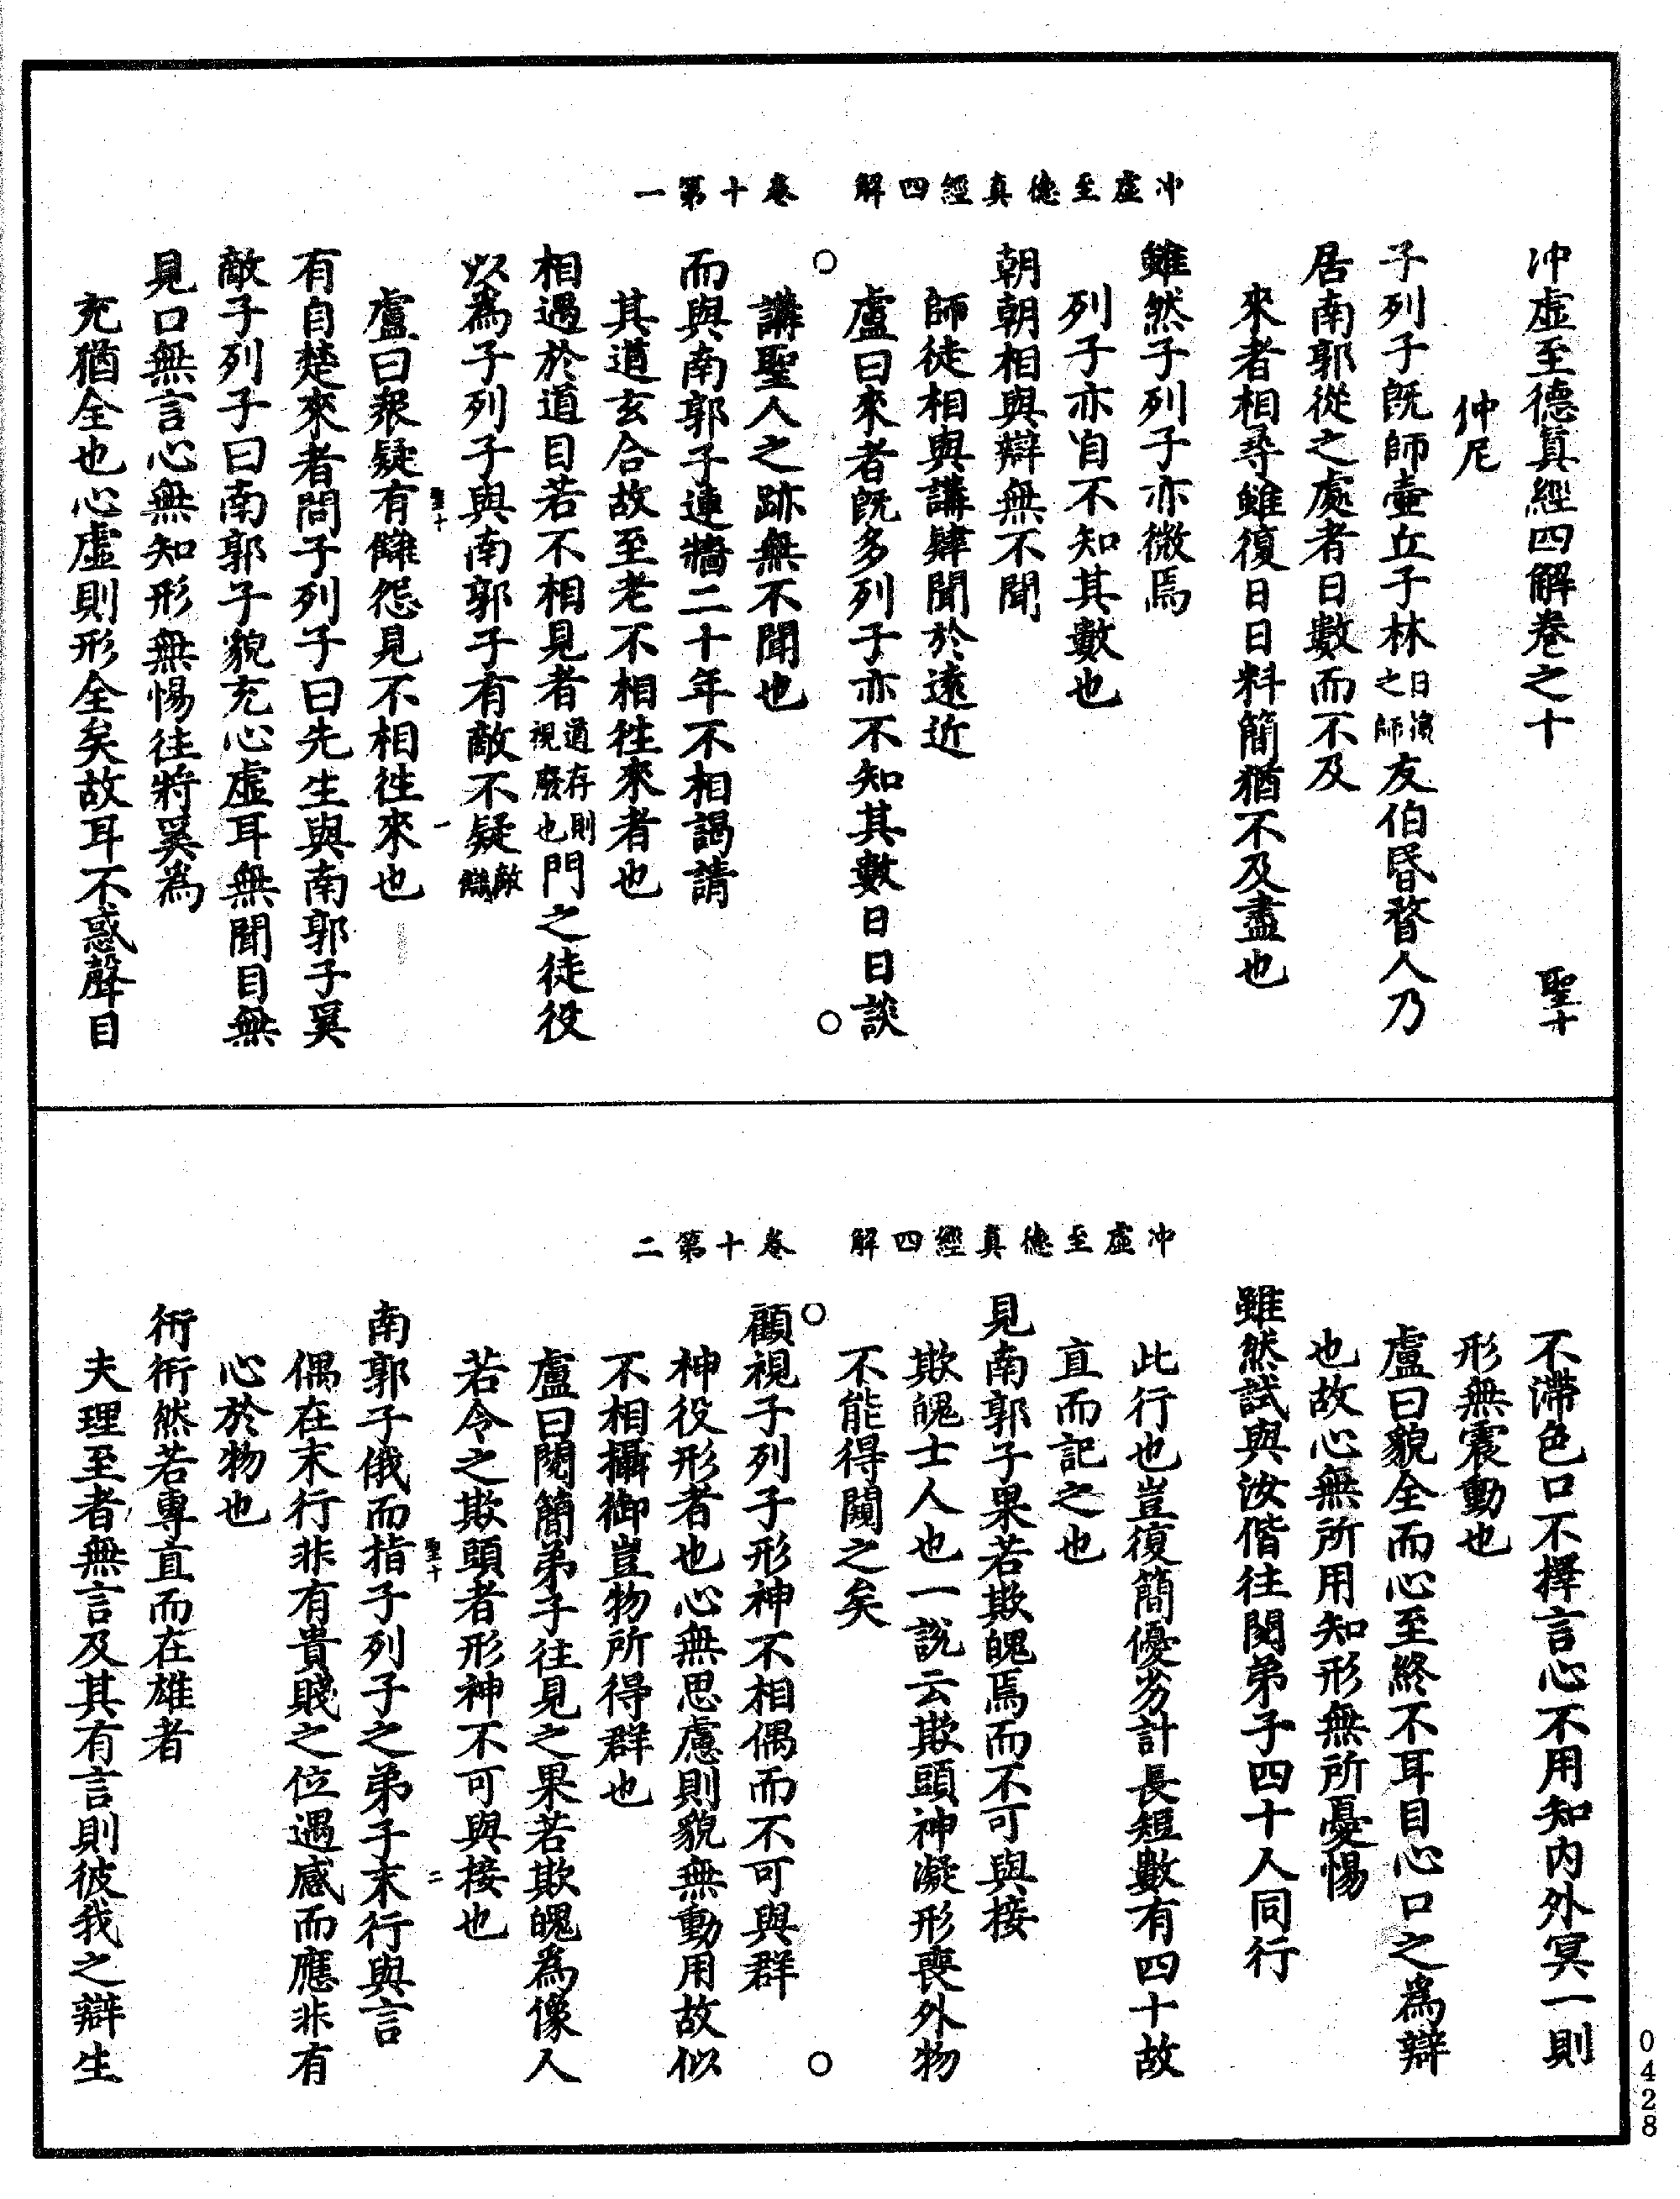 冲虛至德真經四解　卷十第一
冲虛至德真經四解卷之十　聖十
仲尼
子列子既師壺丘子林日損之師友伯昏瞀人乃
居南郭從之處者日數而不及
來者相尋雖復日日料簡猶不及盡也
雖然子列子亦微焉
列子亦自不知其數也
朝朝相與辯無不聞
師徒相與講肄聞於遠近
盧曰來者既多列子亦不知其數日日談
講聖人之跡無不聞也
而與南郭子連牆二十年不相謁請
其道玄合故至老不相往來者也
相遇於道目若不相見者道存則視廢也門之徒役
以為子列子與南郭子有敵不疑敵讎
聖十　一
盧曰衆疑有讎怨見不相往來也
有自楚來者問子列子曰先生與南郭子奚
敵子列子曰南郭子貌充心虛耳無聞目無
見口無言心無知形無惕往將奚為
充猶全也心虛則形全矣故耳不惑聲目
冲虛至德真經四解　卷十第二
不滯色口不擇言心不用知內外冥一則
形無震動也
盧曰貌全而心至終不耳目心口之為辯
也故心無所用知形無所憂惕
雖然試與汝偕往閱弟子四十人同行
此行也豈復簡優劣計長短數有四十故
直而記之也
見南郭子果若欺魄焉而不可與接
欺魄士人也一說云欺頭神凝形喪外物
不能得闚之矣
顧視子列子形神不相偶而不可與群
神役形者也心無思慮則貌無動用故似
不相攝御豈物所得群也
盧曰閱簡弟子往見之果若欺魄為像人
若令之欺頭者形神不可與接也
聖十　二
南郭子俄而指子列子之弟子末行與言
偶在末行非有貴賤之位遇感而應非有
心於物也
衎衎然若專直而在雄者
夫理至者無言及其有言則彼我之辯生
0428